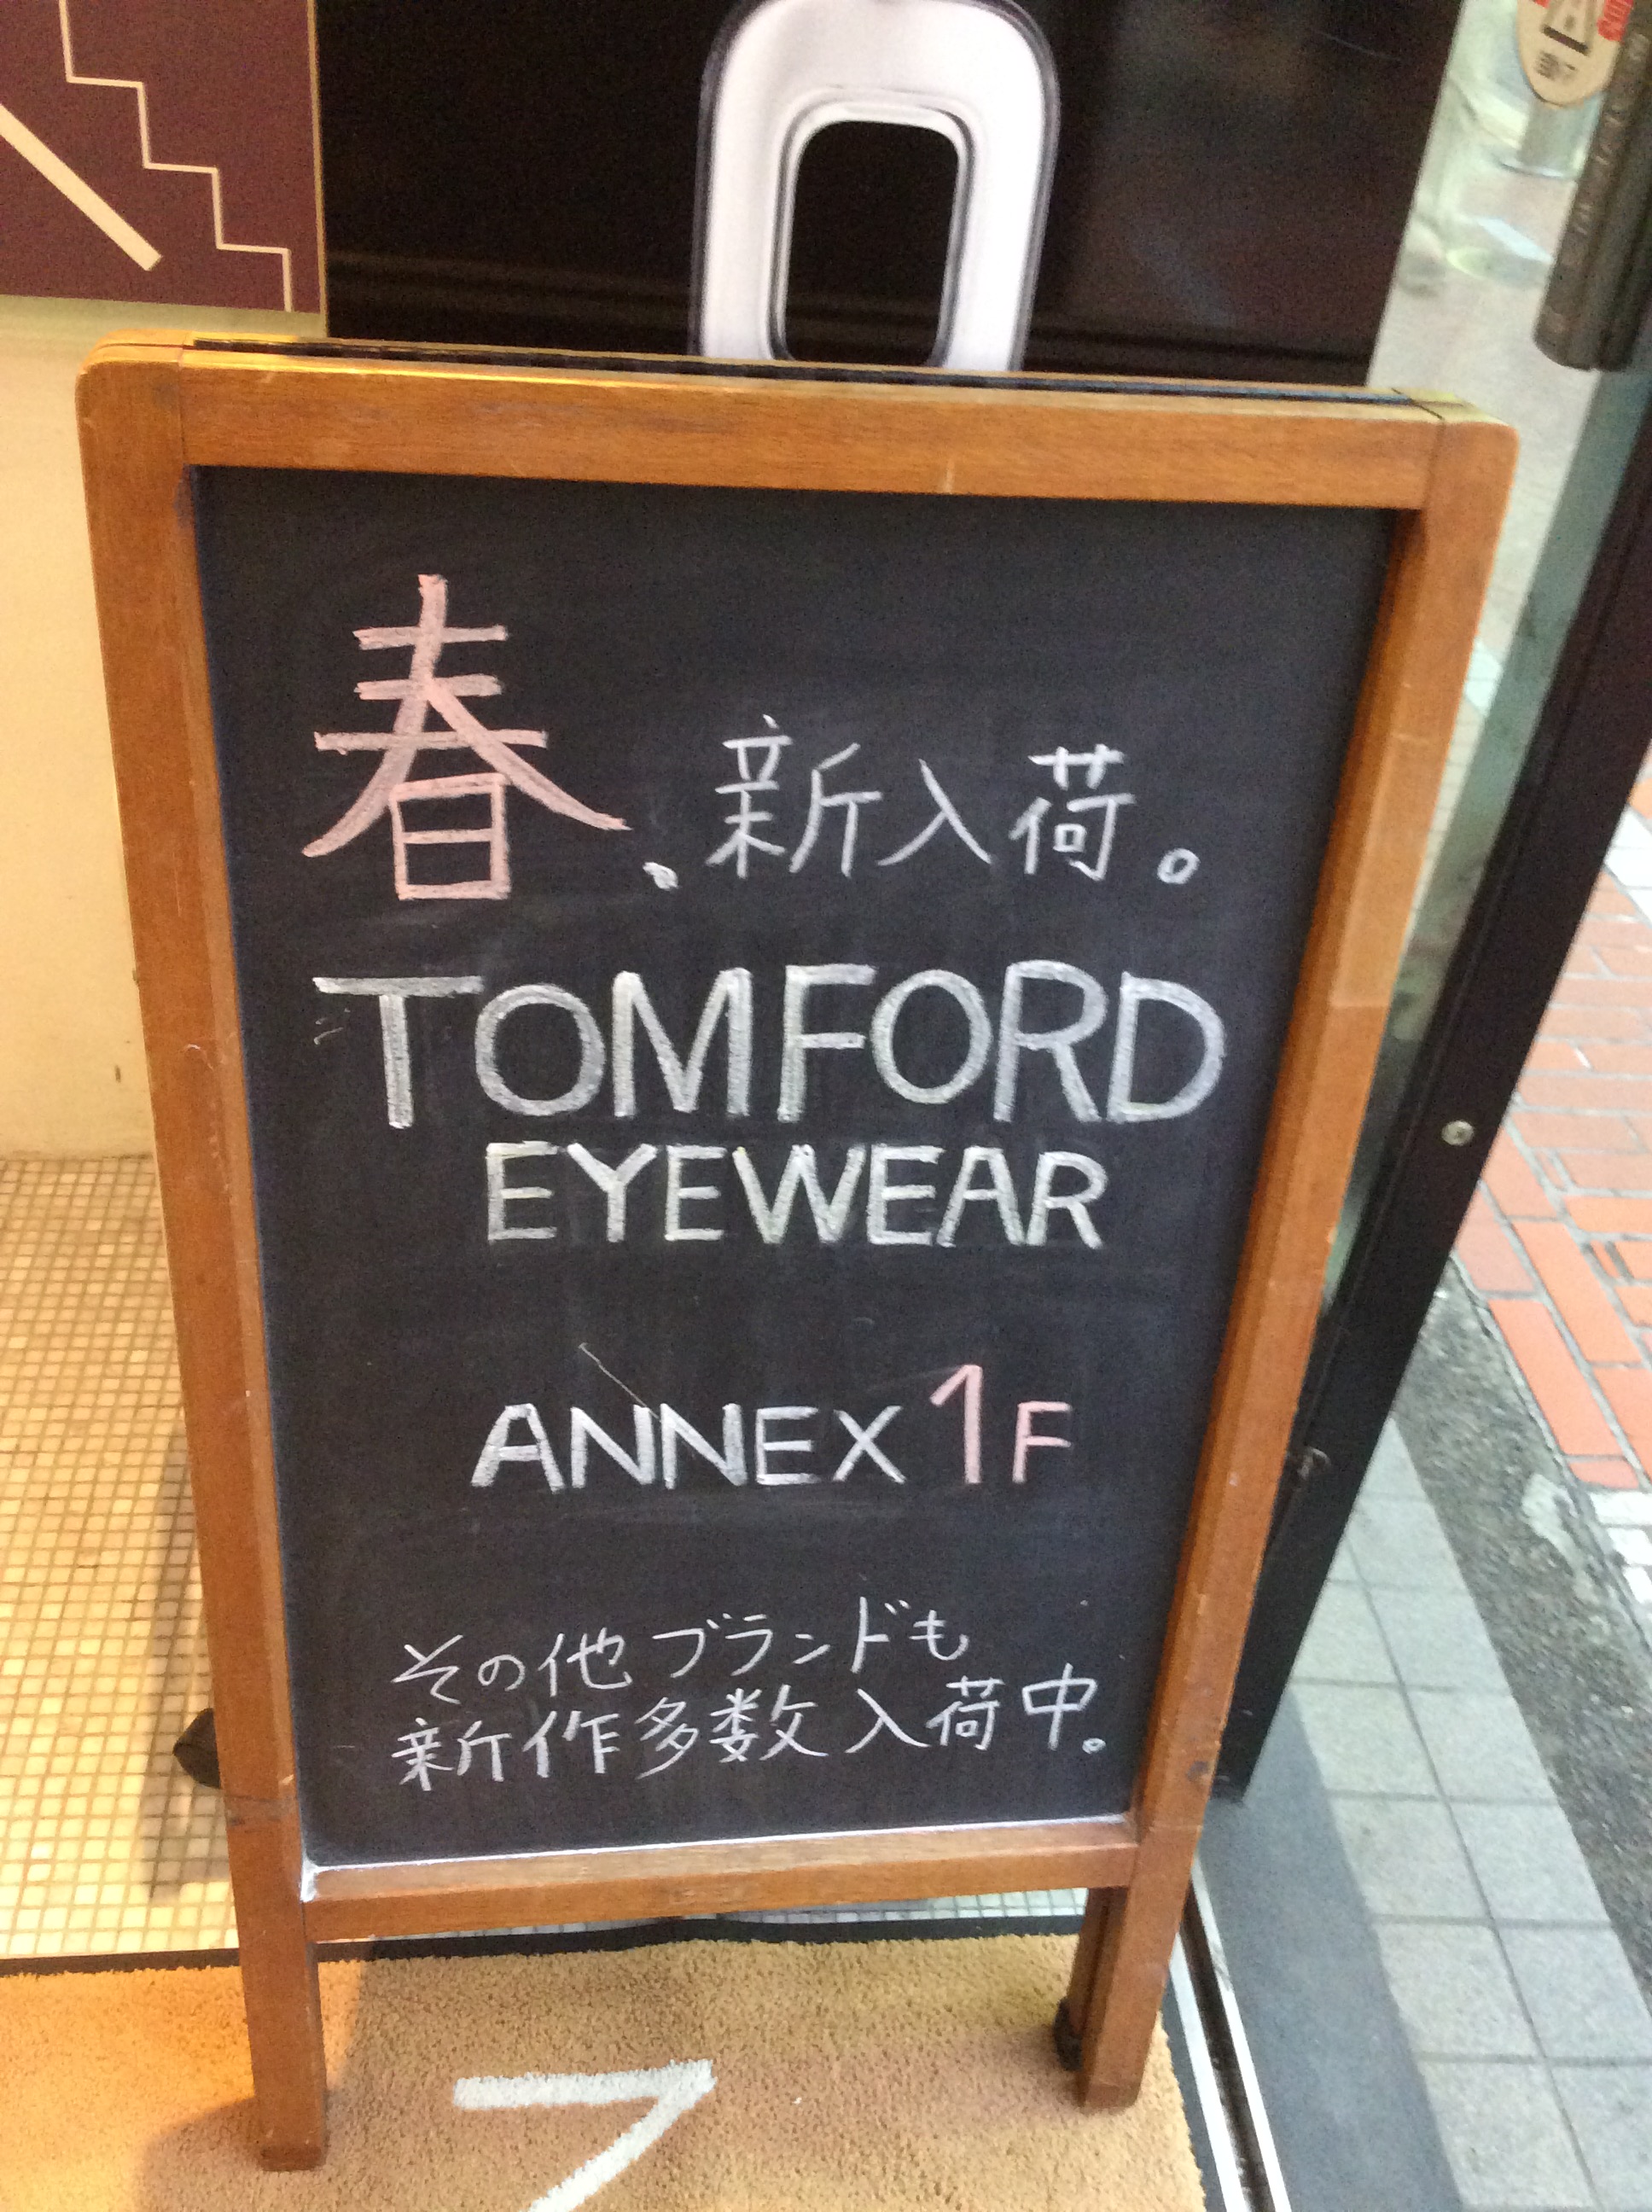 春、新入荷。
TOM FORD
EYEWEAR
ANNEX 1F
その他ブランドも
新作多数入荷中。